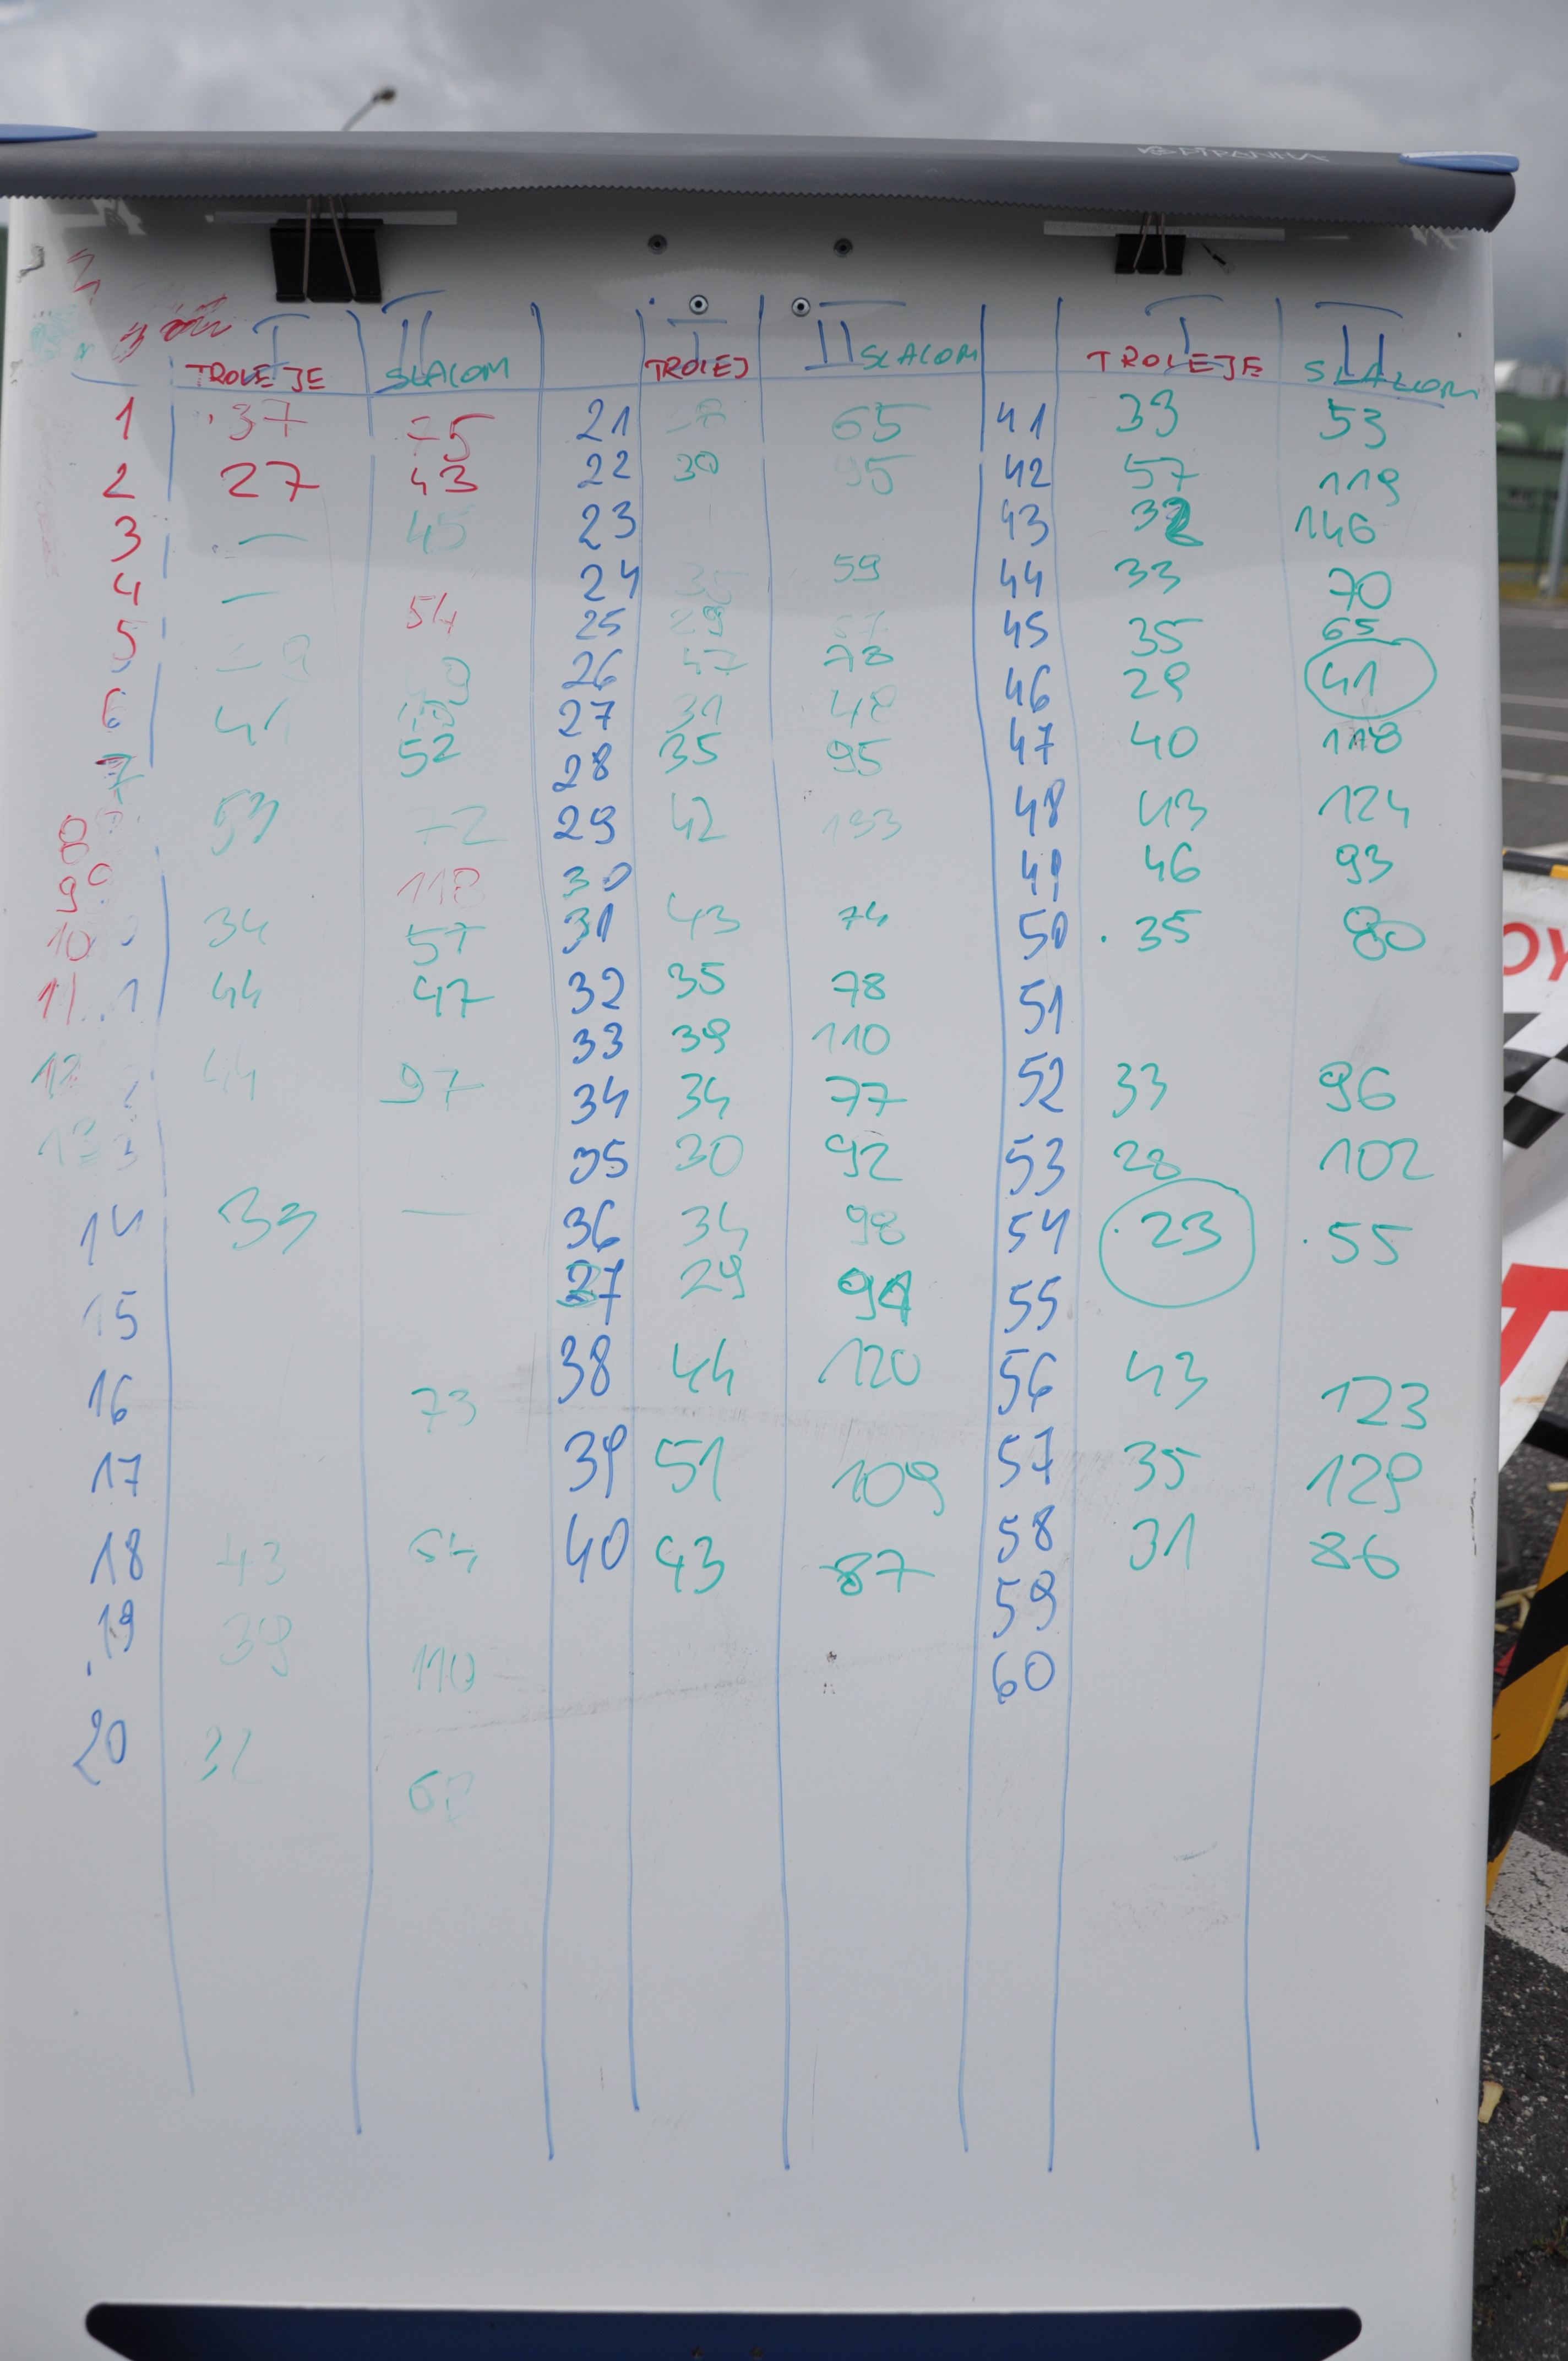 PIRANHA
I II I II I II
TROLEJE SLALOM TROLEJ SLALOM TROLEJE SLALOM
1 37 75 21 65 41 33 53
2 27 43 22 30 95 42 57 119
3 — 45 23 43 32 146
4 — 54 24 35 59 44 33 70
5 25 29 57 45 35 65
6 41 26 47 78 46 29 41
7 52 27 31 48 47 40 118
8 53 72 28 35 95 48 43 124
9 118 29 42 193 49 46 93
10 34 57 30 50 35 80
11 44 47 31 43 74 51
12 44 97 32 35 78 52 33 96
13 33 39 110 53 28 102
14 33 — 34 34 77 54 23 55
15 35 30 92 55
16 73 36 34 98 56 43 123
17 37 29 94 57 35 129
18 43 64 38 44 120 58 31 86
19 39 110 39 51 109 59
20 32 40 43 87 60
OY
T